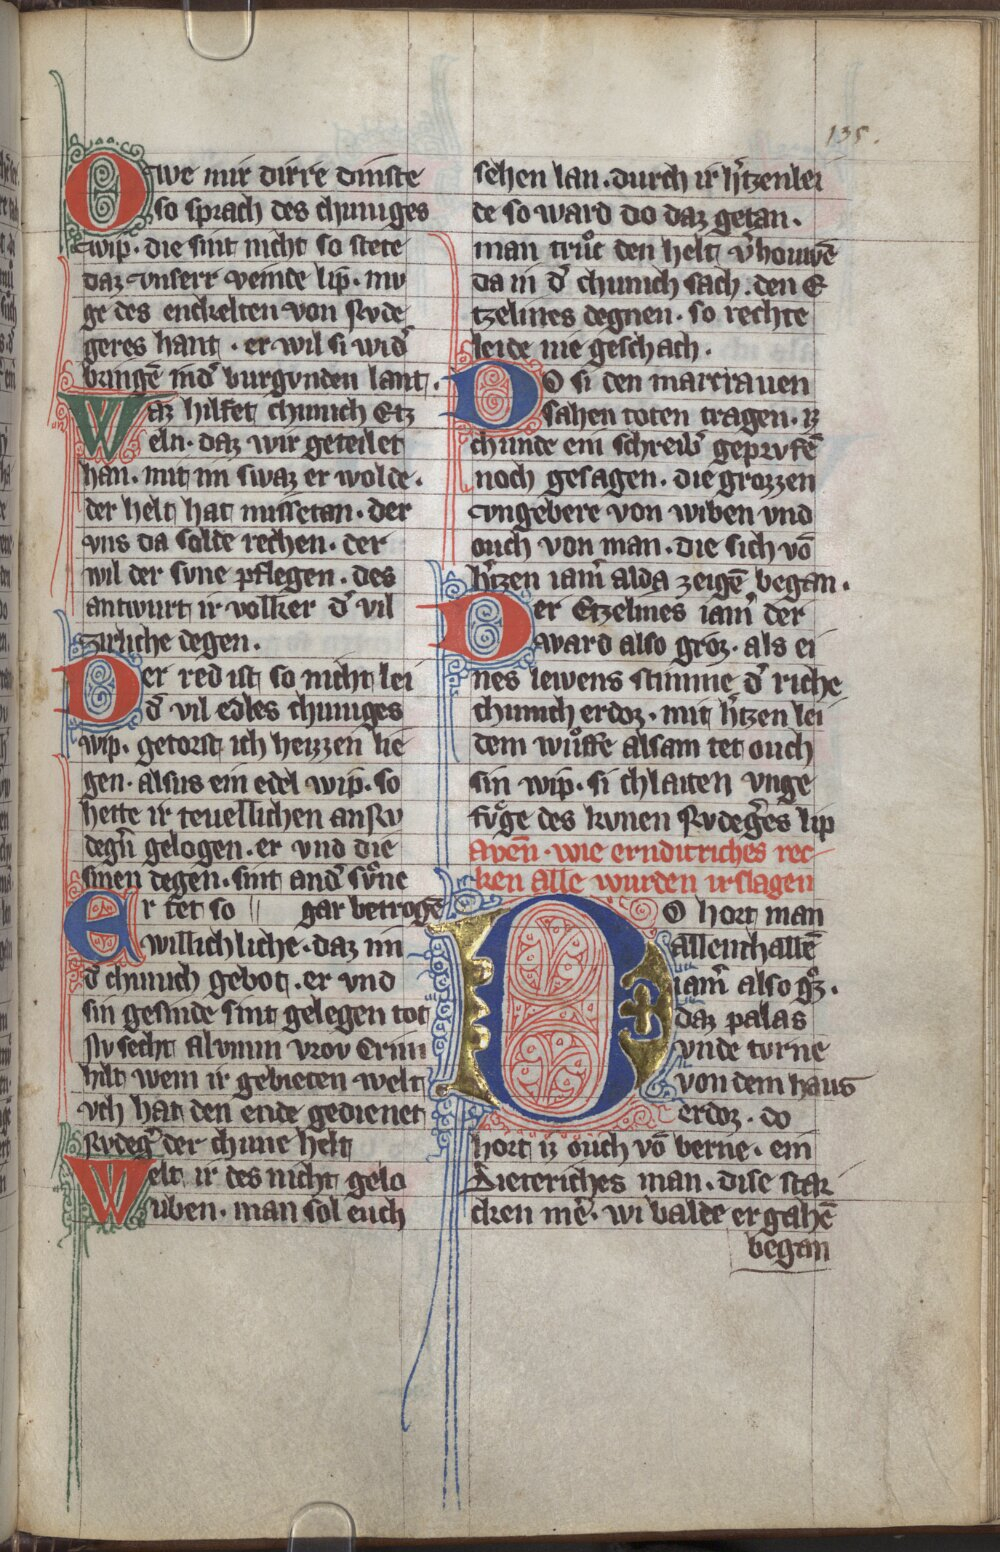 135.
Owe mir dirre dinste
so sprach des chuniges
wip. die sint nicht so stete
daz vnserr veinde lip. mv
ge des enckelten von Rvde
geres hant. er wil si wid᾽
bringē ind᾽ burgvnden lant.
Waz hilfet chunich Etz
eln. daz wir geteilet
han. mit im swaz er wolde.
der helt hat missetan. der
vns da solde rechen. der
wil der svne pflegen. des
antwurt ir volker d᾽ vil
zirliche degen.
Der red ist so nicht lei
d᾽ vil edles chuniges
wip. getorst ich heizzen lie
gen. alsus ein edel wip. so
hette ir teuellichen an Rv
deg᾽n gelogen. er vnd die
sinen degen. sint and᾽ sůne
Er tet so gar betrogē
willichliche. daz im
d᾽ chunich gebot. er vnd
sin gesinde sint gelegen tot
Nv secht alvmm vrov Crim
hilt wem ir gebieten welt
vch hat den ende gedienet
Rvdeg᾽ der chune helt
Welt ir des nicht gelo
uben. man sol euch
sehen lan. durch ir h᾽tzenlei
de so ward do daz getan.
man trůc den helt v᾽houwē
da in d᾽ chunich sach. den E
tzelines degnen. so rechte
leide nie geschach.
Do si den marcrauen
sahen toten tragen. iz
chunde ein schreib᾽ geprvfē
noch gesagen. die grozzen
vngebere von wiben vnd
ouch von man. die sich vō
h᾽tzen iam᾽ alda zeigē began.
Der Etzelines iam᾽ der
ward also groz. als ei
nes lewens stimme d᾽ riche
chunich erdoz. mit h᾽tzen lei
dem wůffe alsam tet ouch
sin wip. si chlaiten vnge
fůge des kvnen Rvdeg᾽es lip
Avēn. wie ern ditriches rec
ken alle wurden irslagen
Do hort man
allenthallē
iam᾽ also g᾽z.
daz palas
vnde tvrne
von dem haus
erdoz. do
hort iz ouch vō berne. ein
Dieteriches man. dise star
cken mē᾽. wi balde er gahē
began